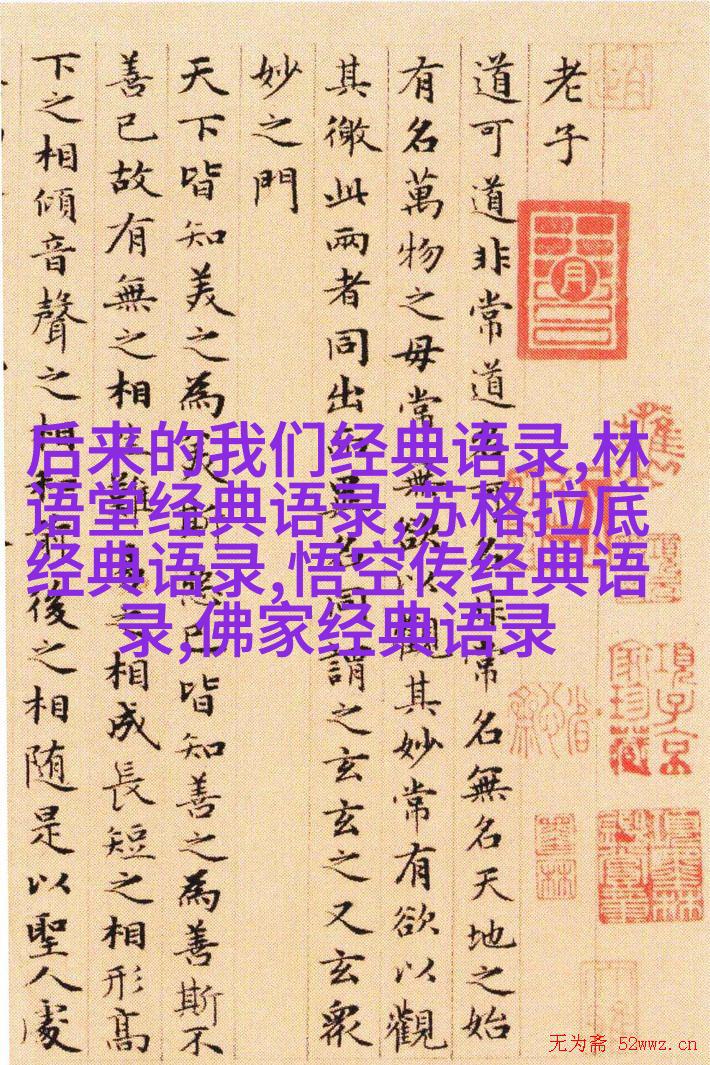 老子
道可道非常道名可名非常名無名天地之始
有名萬物之母常無欲以觀其妙常有欲以觀
其徼此兩者同出而異名同謂之玄玄之又玄眾
妙之門
天下皆知美之為美斯惡已皆知善之為善斯不
善已故有無之相生難易之相成長短之相形高
下之相傾音聲之相和前後之相随是以聖人處
后来的我们经典语录,林
语堂经典语录,苏格拉底
经典语录,悟空传经典语
录,佛家经典语录
項子京
家珍藏
无为斋 52wwz.cn